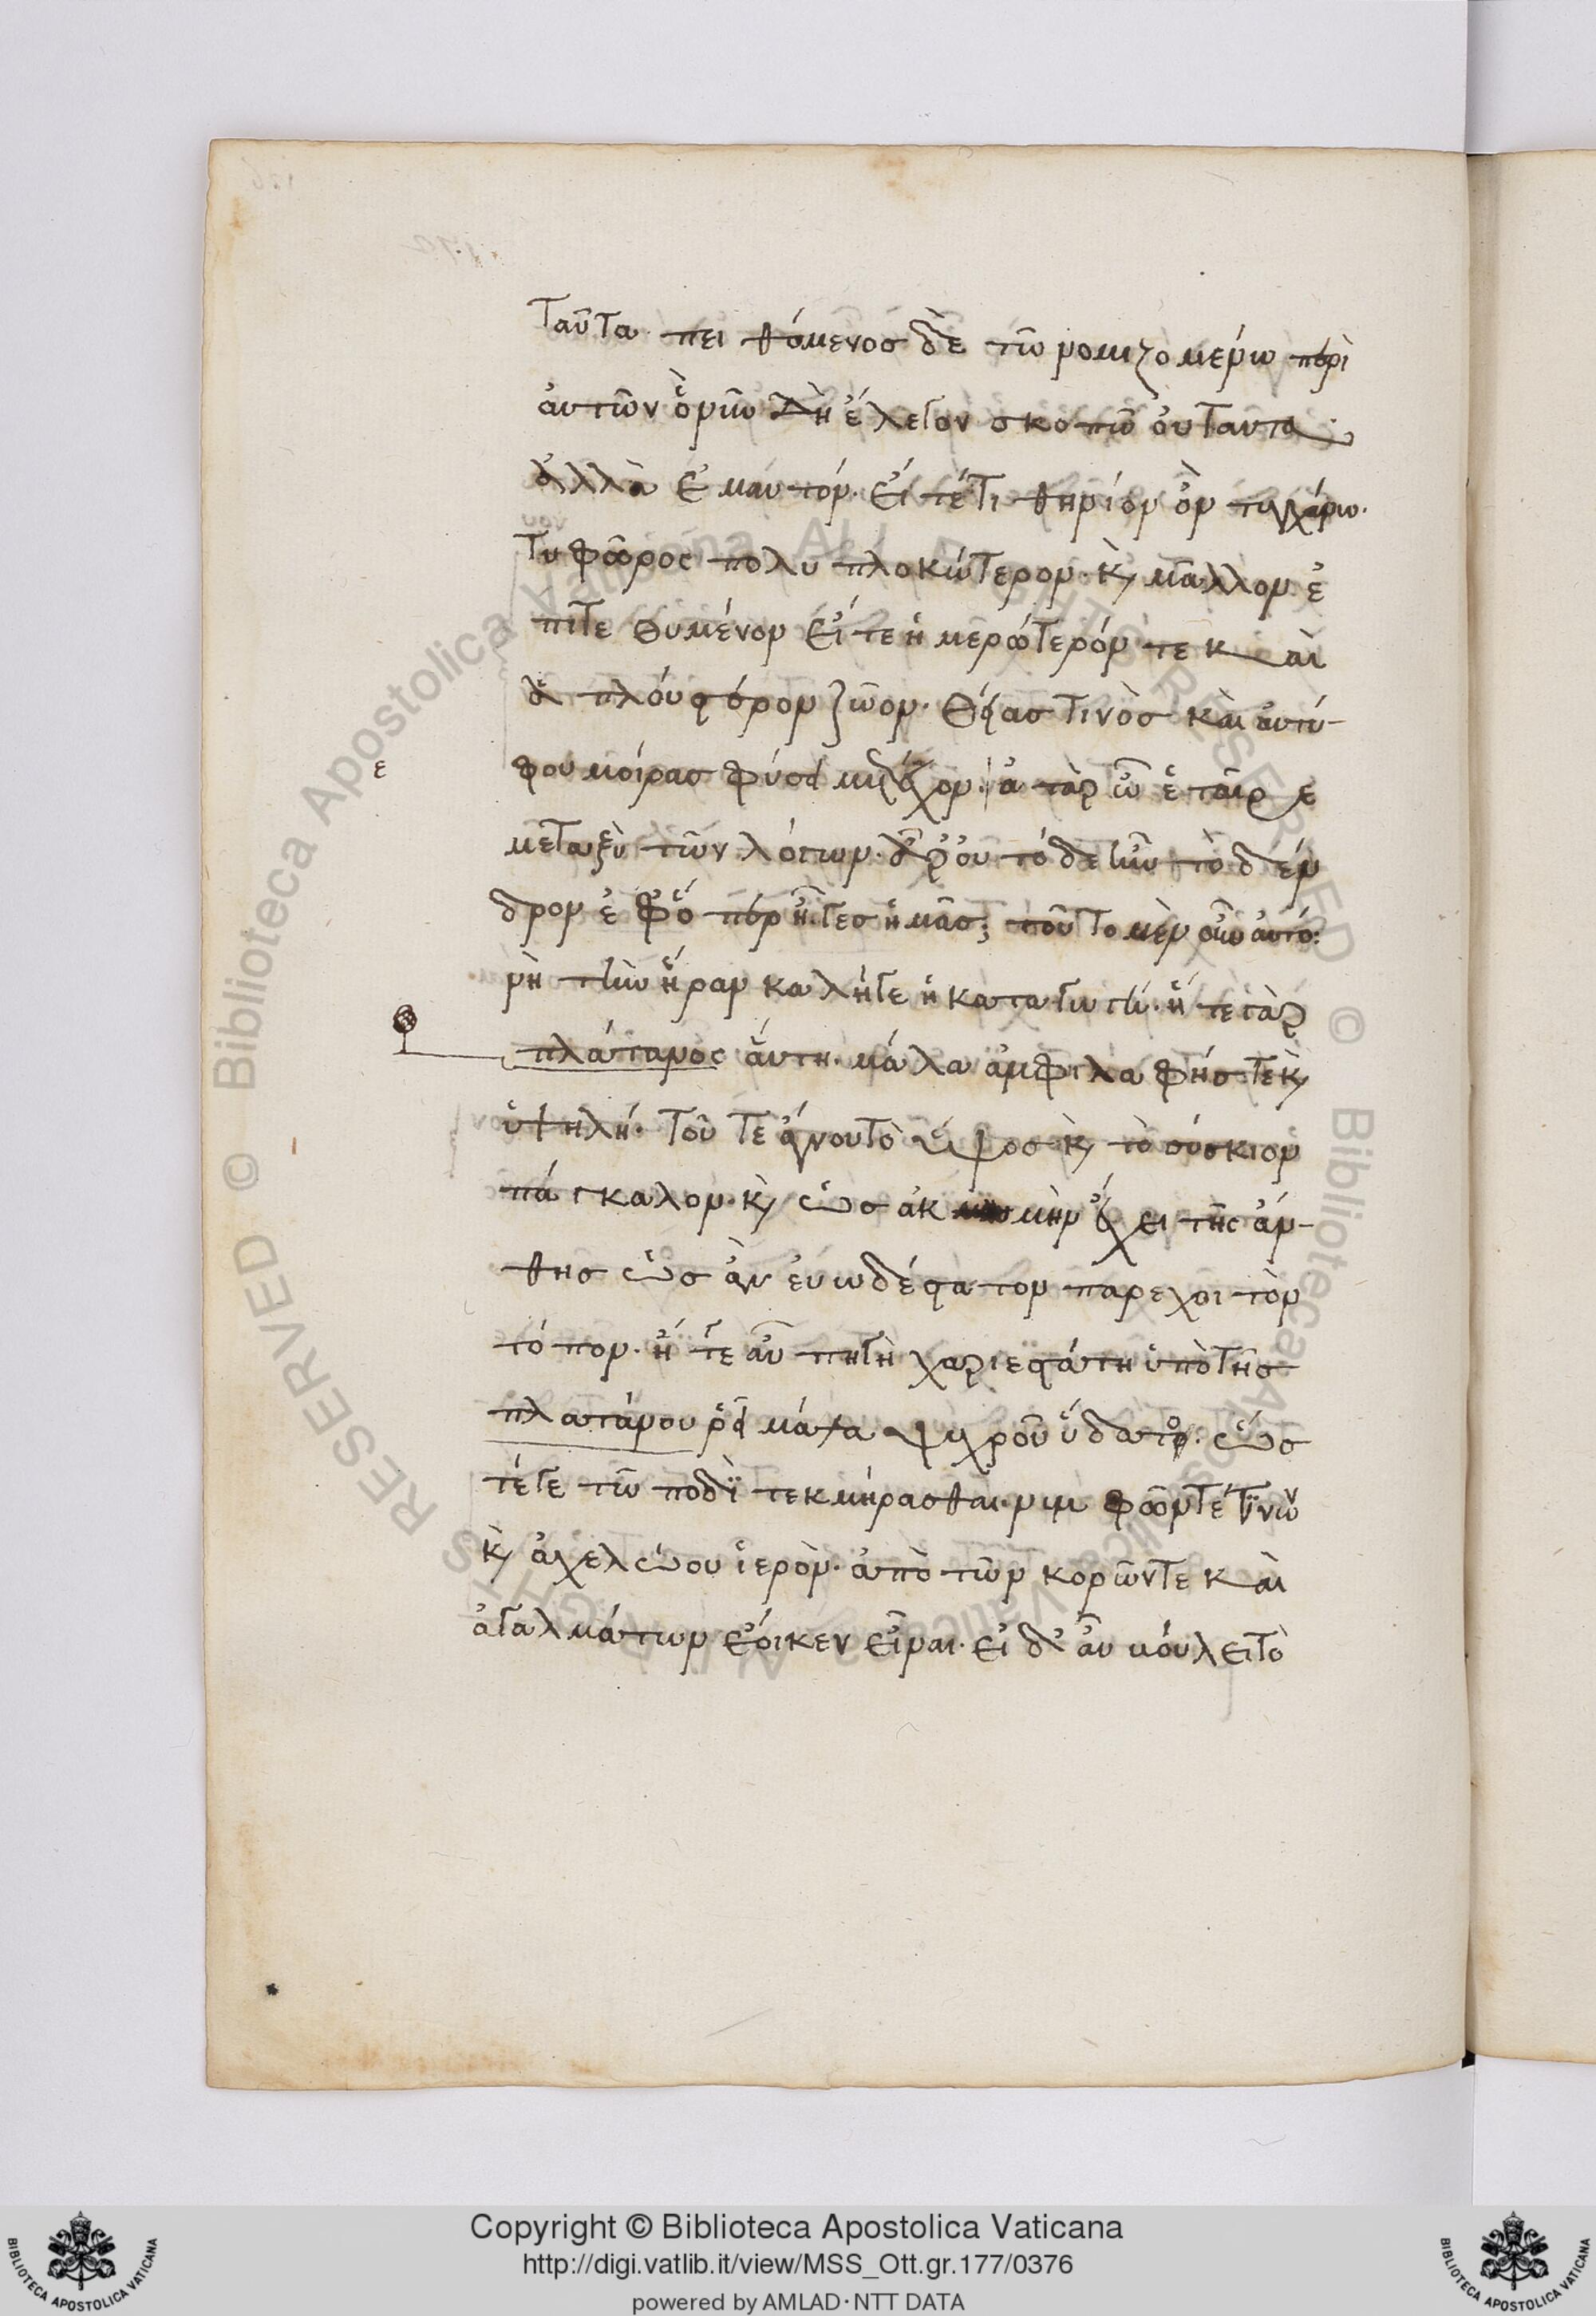 ταῦτα· πειθόμενος δὲ τῶ νομιζομένω περὶ
ἀυτῶν ὃ νῦν δὴ ἔλεγον σκοπῶ ὀυ ταῦτα
ἀλλὰ ἐμαυτόν· εἴτέ τι θηρίον ὂν τυγχάνω·
τυφῶνος πολυπλοκώτερον· κὶ μᾶλλον ἐ
πιτεθυμένον εἴτε ἡμερώτερόν τε καὶ
ἁπλούστερον ζῶον· θείας τινὸς καὶ ἀτύ-
ε
φου μοίρας φύσει μετέχον· ἀτὰρ ὦ ἑταῖρε
μεταξὺ τῶν λόγων· ἆρ' οὐ τόδε ἦν τὸ δέν
δρον ἐφ' ὅπερ ἦγες ἡμᾶς; τοῦτο μὲν οὖν ἀυτό:
νὴ τὴν ἥραν καλή γε ἡ καταγωγή· ἥ τε γὰρ
πλάτανος ἅυτη· μάλα ἀμφιλαφής τε κὶ
ὑψηλή· τοῦ τε ἄγνου τὸ ὕψος κὶ τὸ σύσκιον
πάγκαλον· κὶ ὡς ἀκμὴν ἔχει τῆς ἄν-
θης ὡς ἂν ἐυωδέστατον παρέχοι τὸν
τόπον· ἥ τε ἀῦ πηγὴ χαριεστάτη ὑπὸ τῆς
πλατάνου ῥεῖ μάλα ψυχροῦ ὕδατος· ὥς
τέ γε τῶ ποδὶ τεκμήρασθαι· νυμφῶν τέ τινων
κὶ ἀχελώου ἱερὸν· ἀπὸ τῶν κορῶν τε καὶ
ἀγαλμάτων ἔοικεν εἶναι· εἰ δ' ἀῦ βούλει τὸ
Copyright © Biblioteca Apostolica Vaticana
http://digi.vatlib.it/view/MSS_Ott.gr.177/0376
powered by AMLAD·NTT DATA